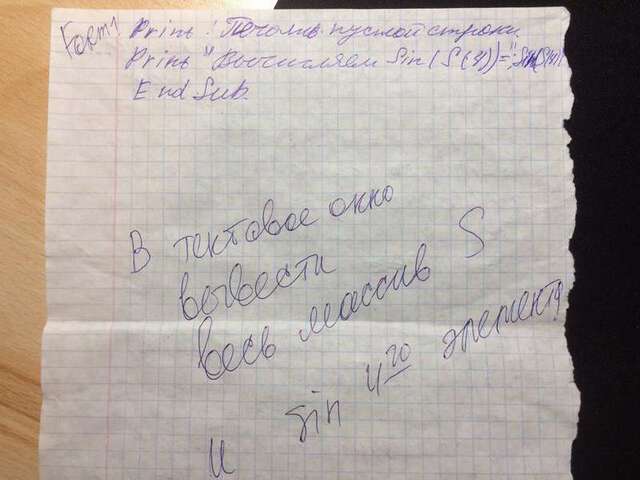 Form1 Print ! Печать пустой строки
Print "Вычисляем Sin(S(4))="; Sin(S(4))
End Sub.
В тектовое окно
вывести
весь массив S
и sin 4го элемента